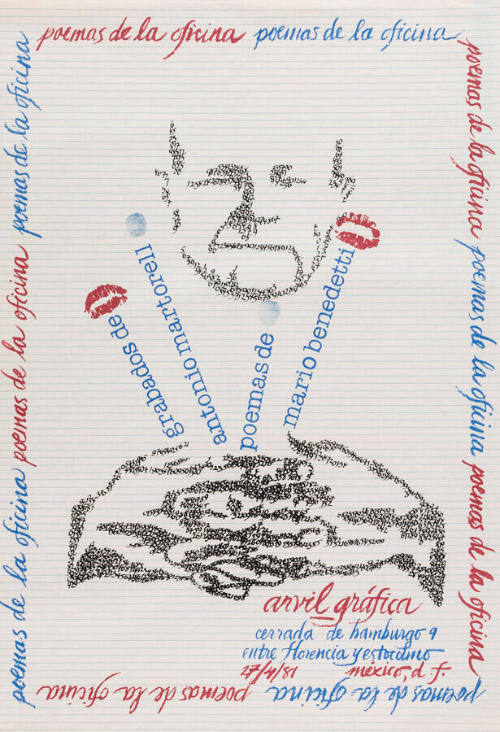 poemas de la oficina poemas de la oficina
poemas de la oficina poemas de la oficina poemas de la oficina
poemas de la oficina poemas de la oficina
poemas de la oficina poemas de la oficina poemas de la oficina
grabados de
antonio martorell
poemas de
mario benedetti
arvil gráfica
cerrada de hamburgo 9
entre florencia y estocolmo
méxico, d.f.